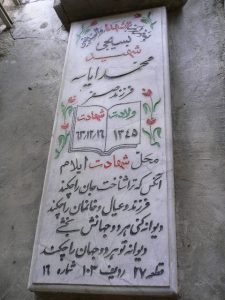 بسیجی
شهید
محمد ایاسه
فرزند
ولادت شهادت
۱۳۴۵ ۶۳/۱۲/۲۶
محل شهادت ایلام
آنکس که تراشناخت جان را چکند
فرزند و عیال و خانمان را چکند
دیوانه کنی هر دو جهانش بخشی
دیوانه تو هر دو جهان را چکند
قطعه ۲۷ ردیف ۱۰۳ شماره ۱۶